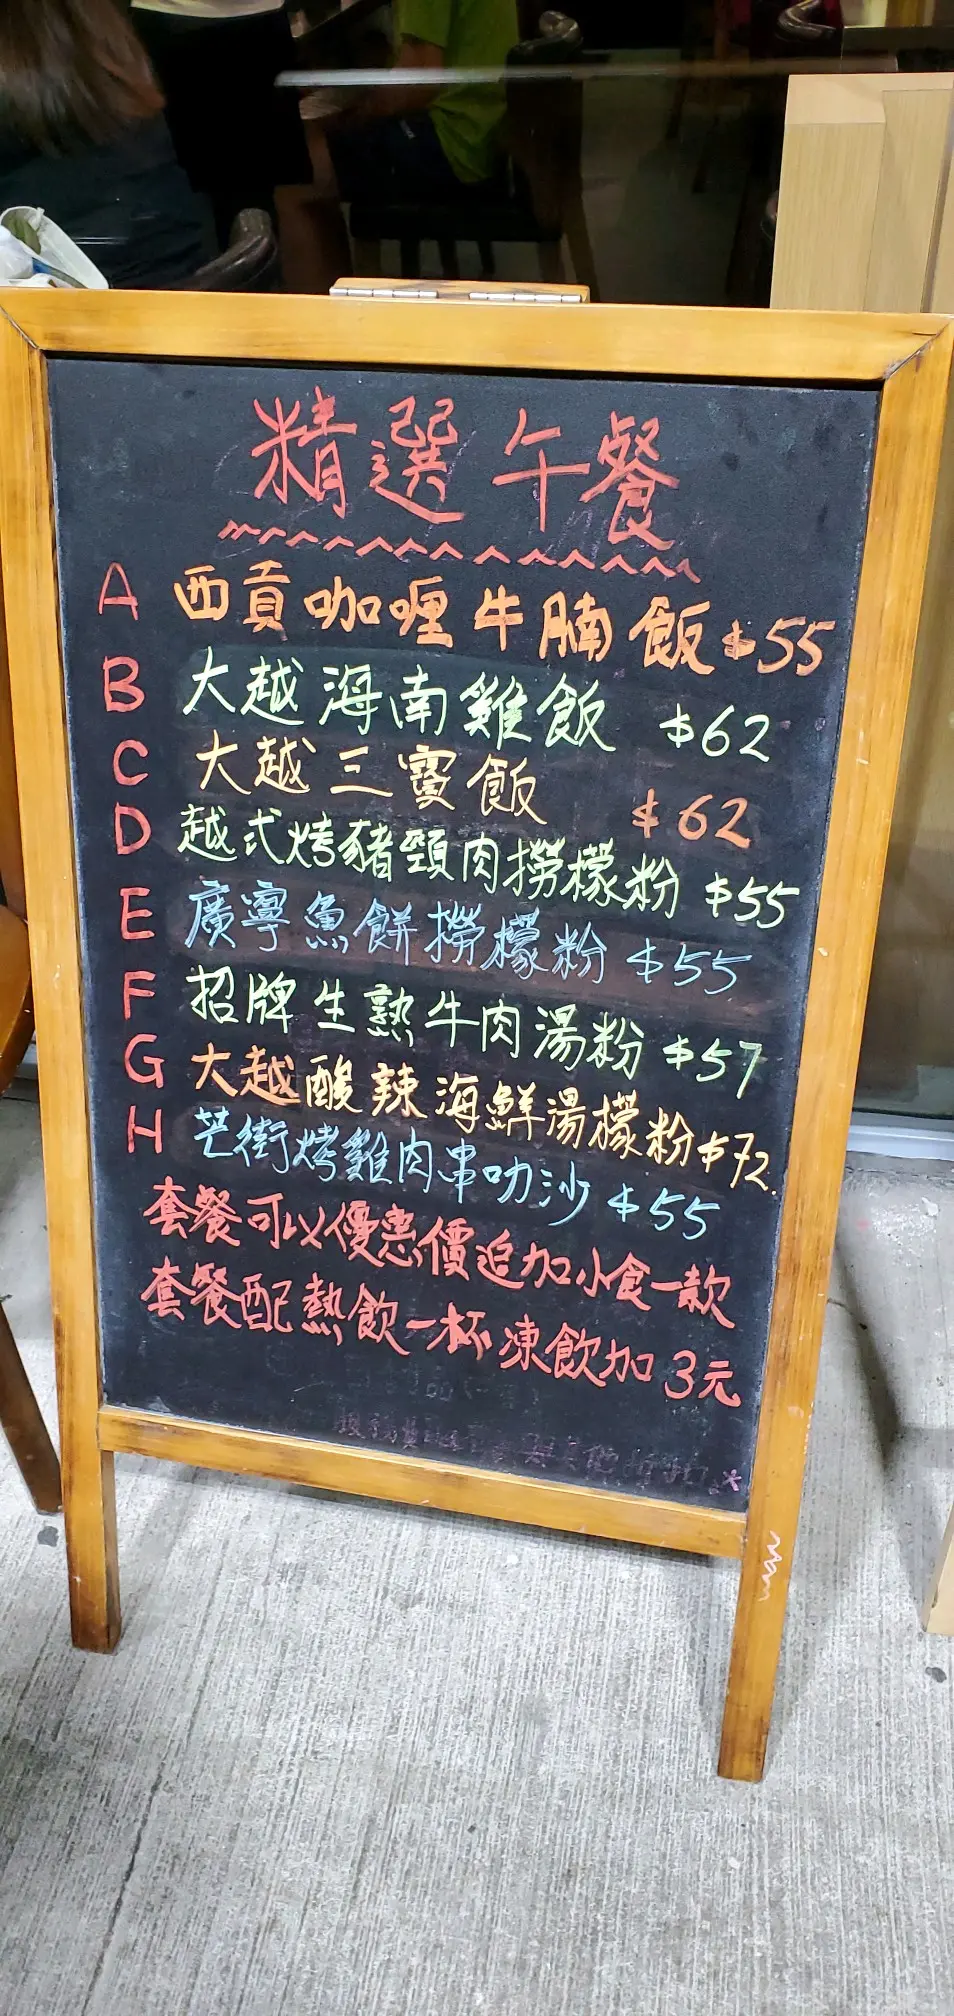 精選午餐
A 西貢咖喱牛腩飯 $55
B 大越海南雞飯 $62
C 大越三寶飯 $62
D 越式烤豬頸肉撈檬粉 $55
E 廣寧魚餅撈檬粉 $55
F 招牌生熟牛肉湯粉 $57
G 大越酸辣海鮮湯檬粉 $72
H 芒街烤雞肉串叻沙 $55
套餐可以優惠價追加小食一款
套餐配熱飲一杯凍飲加3元